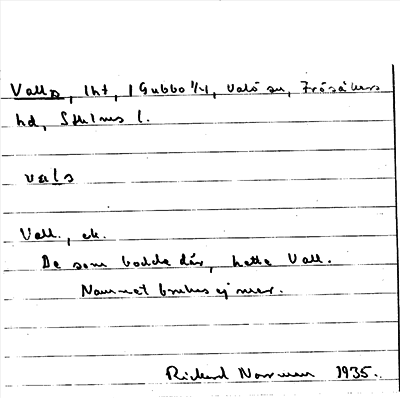 Valls, lht, 1 Gubbo 1/4, Valö sn, Frösåkers
hd, Sthlms l.
vals
Vall., ek.
De som bodde där, hette Vall.
Namnet brukas ej mer.
Rickard Norrman 1935.